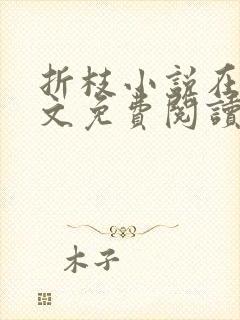 折枝小說在
文免費閱讀
木子